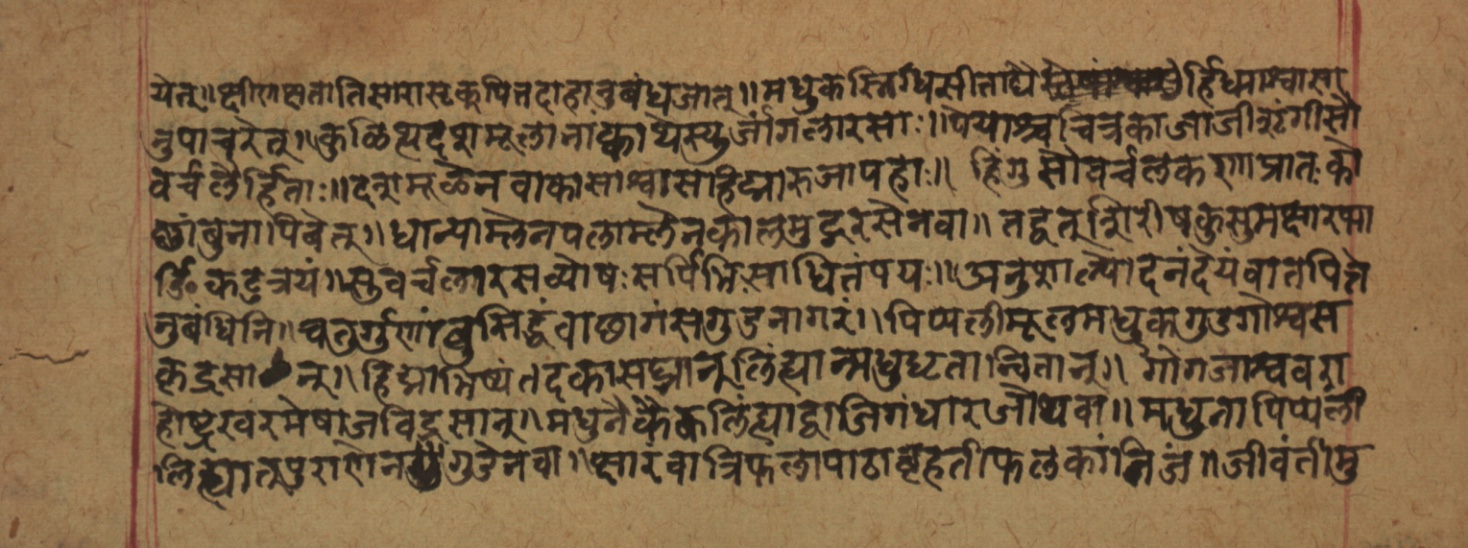 येत्॥ क्षीणक्षतातिसारासृक्पित्तदाहानुबंधजात्॥ मधुकस्निग्धसीताद्यै र्हिध्माश्वासा
नुपाचरेत्॥ कुलित्थदशमूलानां क्वाथे स्यु जांगलारसाः॥ पेयाश्च चित्रकाजाजीशृंगीसौ
वर्चलैर्हिताः॥ दशमूलेन वा कासश्वासहिध्मारुजापहाः॥ हिंगुसौवर्चलकणा प्रातः को
ष्णांबुना पिबेत्॥ धान्याम्लेन पलाम्लेन कोलमुद्गरसेन वा॥ तद्वत् शिरीषकुसुम
कटुत्रयं॥ सुवर्चलारसव्योषः सर्पिभिः साधितं पयः॥ अनुशाल्योदनं देयं वातपित्ते
नुबंधिनि॥ चतुर्गुणांबुसिद्धं वा छागं सगुडनागरं॥ पिप्पलीमूलमधुकगुडगोश्वस
कृद्रसान्॥ हिध्माभिष्यंदकासघ्नान् लिंह्यान्मधुघृतान्वितान्॥ गोगजाश्ववरा
होष्ट्रखरमेषाजविड्रसान्॥ मधुनैकैकं लिंह्याद्वाजिगंधारजोथवा॥ मधुना पिप्पली
लिह्यात् पुराणेन गुडेन वा॥ सारवात्रिफलापाठाबृहतीफल जीवंतीमु